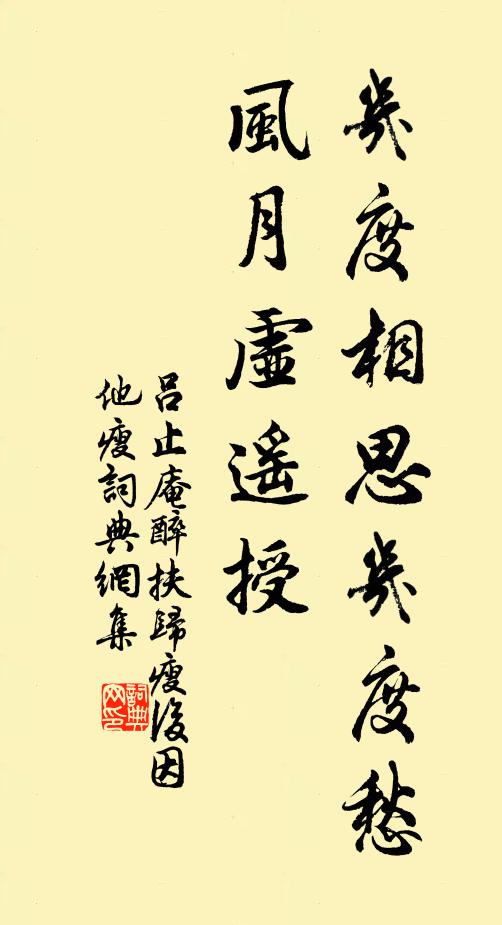 幾度相思幾度愁
風月虛遥授
吕止庵醉扶歸瘦後因
他瘦詞典網集
詞典网印